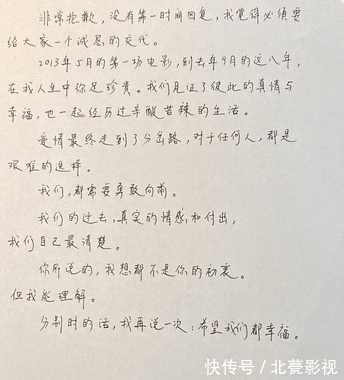 非常抱歉，没有第一时间回复，我觉得必须要
给大家一个诚恳的交代。
2013年5月的第一场电影，到去年9月的近八年，
在我人生中弥足珍贵。我们见证了彼此的真情与
幸福，也一起经历过辛酸苦辣的生活。
爱情最终走到了分岔路，对于任何人，都是
艰难的选择。
我们，都需要勇敢向前。
我们的过去，真实的情感和付出，
我们自己最清楚。
你所说的，我想都不是你的初衷。
但我能理解。
分别时的话，我再说一次：希望我们都幸福。
快传号／北甍影视